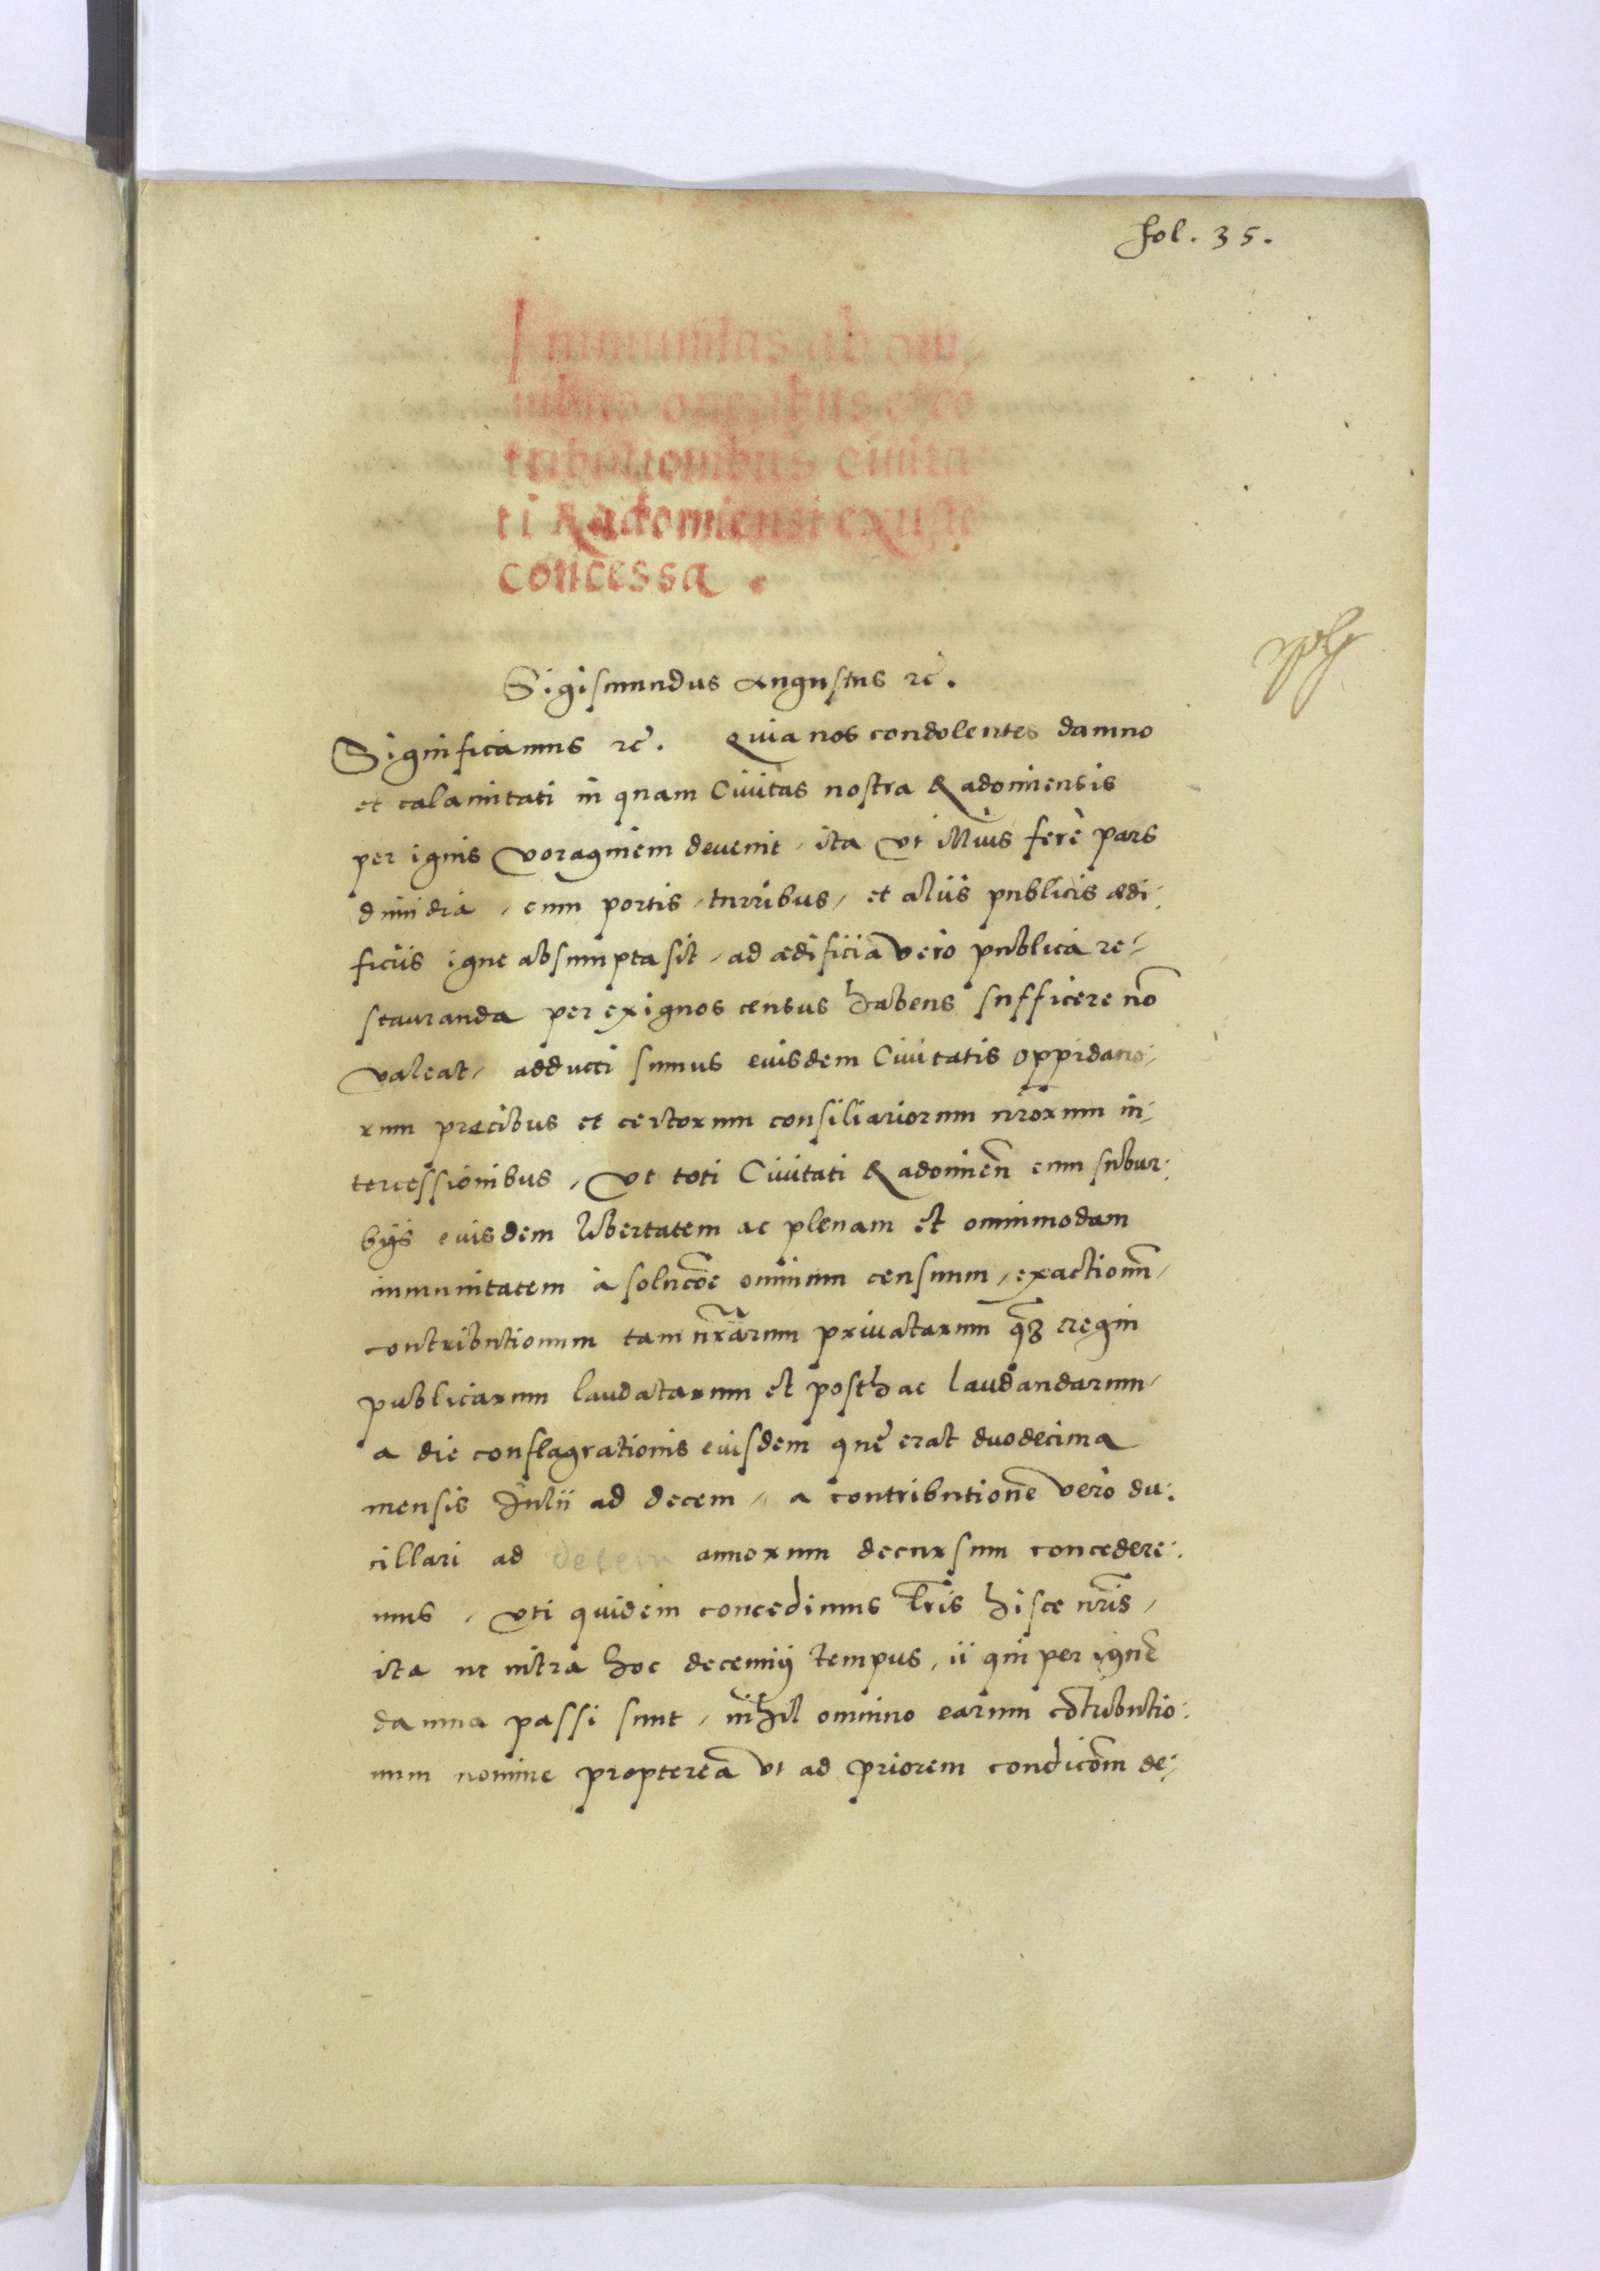 fol. 35.
Immunitas ab om,
nibus oneribus et co
tributionibus civita
ti Radomiensi exuste
concessa.
Sigismundus Augustus rc̃.
Significamus rc̃. Quia nos condolentes damno
et calamitati in quam Civitas nostra Radomiensis
per ignis voraginem devenit, ita vt illius ferè pars
dimidia, cum portis, turribus, et aliis publicis ædi:
ficiis igne absumpta sit, ad ædificia verò publica re:
stauranda per exiguos census habens sufficere nõ
valeat, adducti sumus eiusdem Civitatis oppidano:
rum precibus et certorum consiliariorum nr̃orum in:
tercessionibus, vt toti Civitati Radomieñ cum subur:
bijs eiusdem libertatem ac plenam et omnimodam
immunitatem à soluc̃oe omnium censuum, exactionũ,
contributionum tam nr̃arum privatarum q̃ꝫ regni
publicarum laudatarum et posthac laudandarum,
a die conflagrationis eiusdem quę erat duodecima
mensis Julii ad decem, a contributione verò du:
cillari ad decem annorum decursum concedere:
mus, vti quidem concedimus lr̃is hisce nr̃is,
ita ut intra hoc decennij tempus, ii qui per ignẽ
damna passi sunt, nihil omnino earum cõtributio:
num nomine propterea vt ad priorem condicõm de: